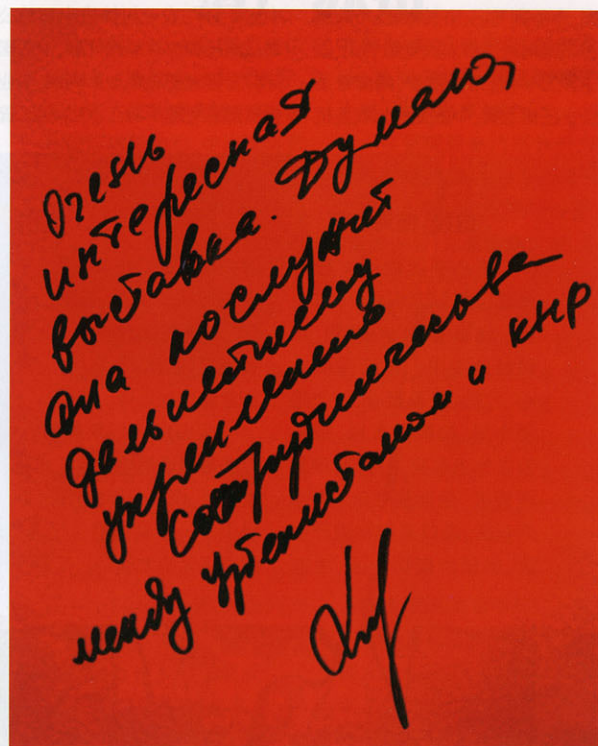 Очень
интересная
выставка. Думаю,
она послужит
дальнейшему
укреплению
сотрудничества
между Узбекистаном и КНР